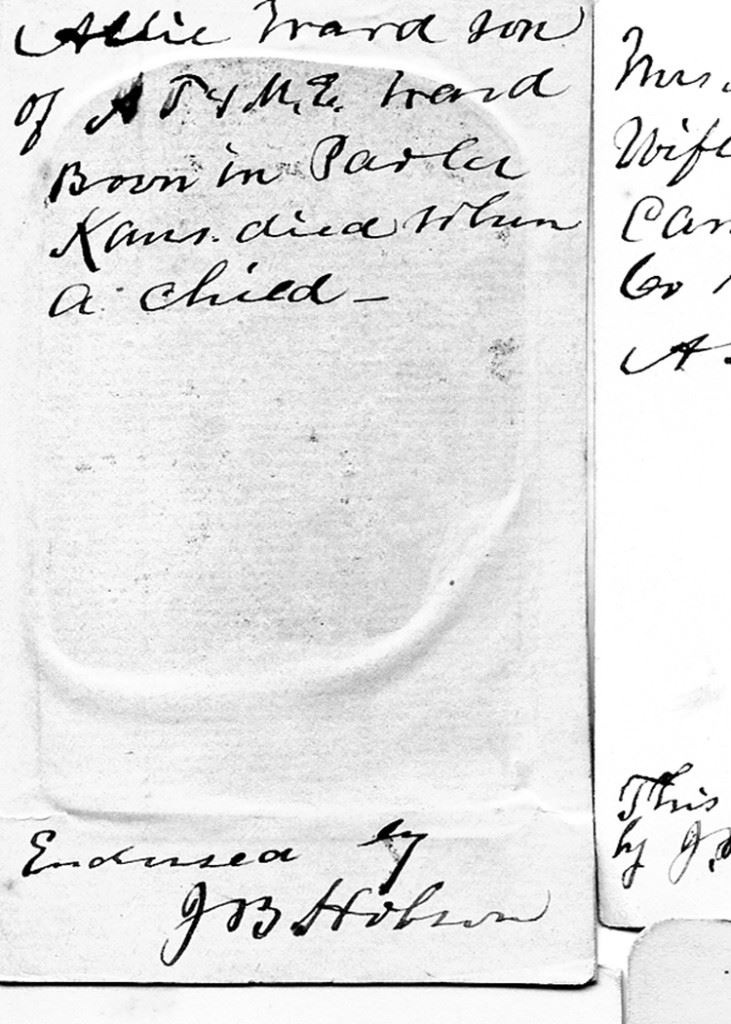 Allie Ward son
of A T & M. E. Ward
Born in Parker
Kans. died when
a child –
Endorsed by
J B Hobson
Mrs.
Wife
Co
A.
This
by J.